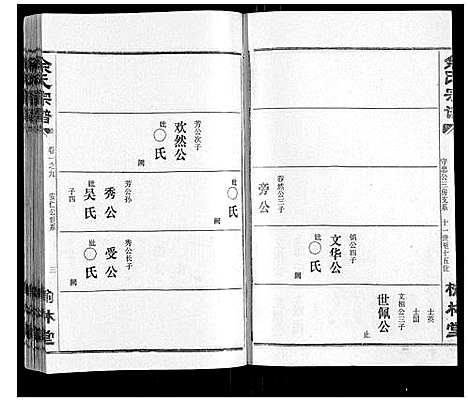 余氏宗谱
守忠公三房支系
十一世至十五世
榆林堂
士英
士国
文相公三子
世佩公
止
镇公四子
文华公
妣〇氏
阙
春然公三子
旁公
妣〇氏
阙
芳公次子
欢然公
妣〇氏
阙
芳公孙
秀公
妣吴氏
子四
秀公长子
受公
妣〇氏
阙
余氏宗谱
卷一之九
安仁公世系
三
榆林堂